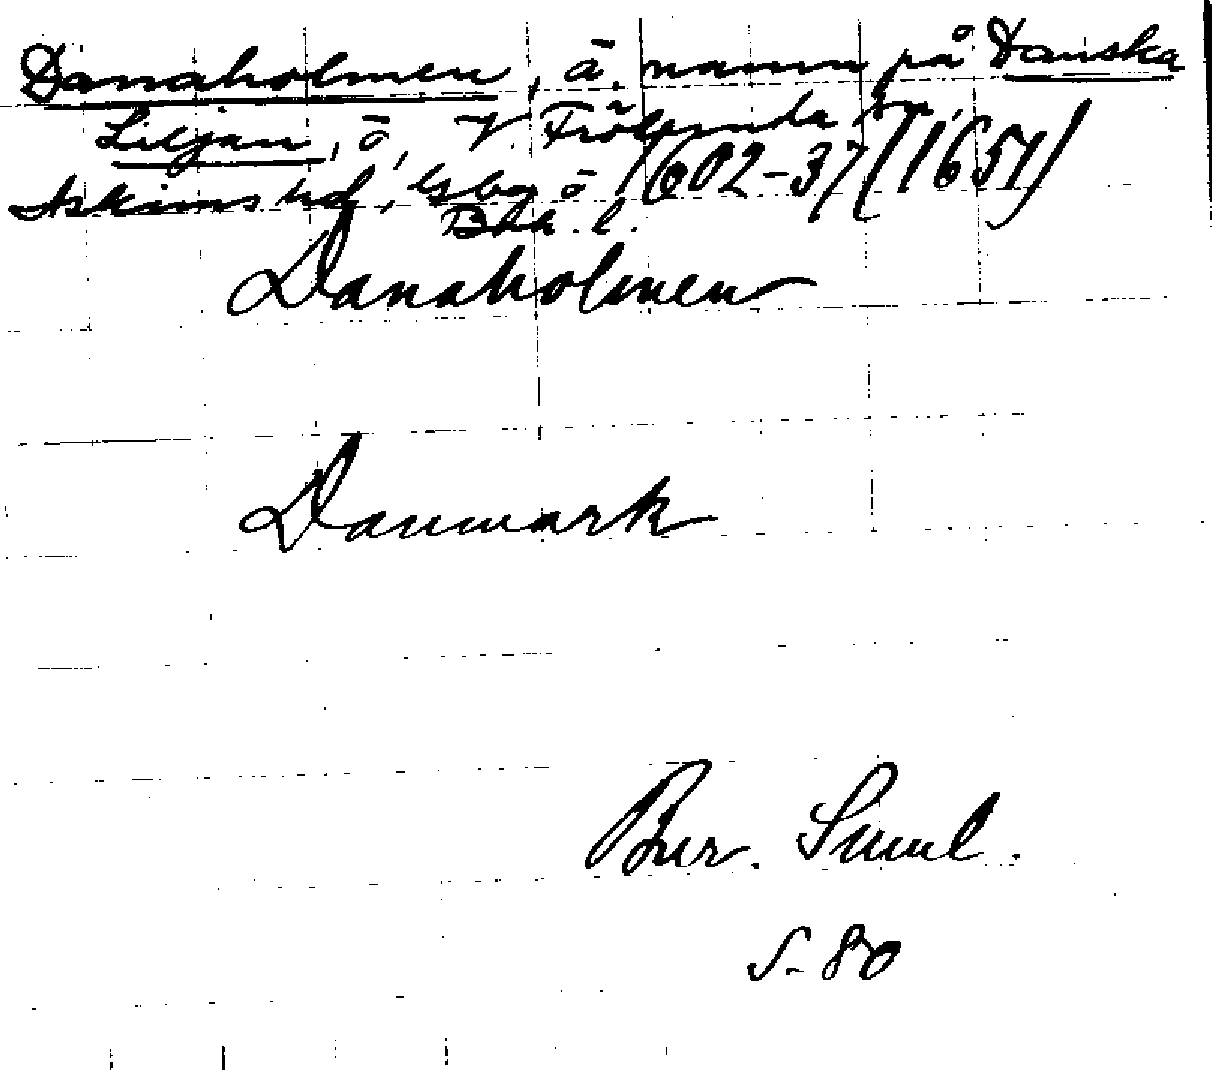 Danaholmen, ä. namn på Danska
Liljan, ö, V. Frölunda sn,
Askims hd, Gbg o 1602-37 (1651)
Boh. l.
Danaholmen
Danmark
Bur. Suml.
s. 80